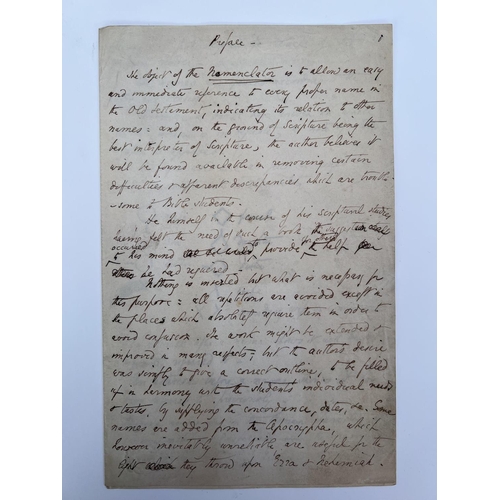 Preface - 1
The object of the Nomenclator is to allow an easy
and immediate reference to every proper name in
the Old Testament, indicating its relation to other
names: and, on the ground of Scripture being the
best interpreter of Scripture, the author believes it
will be found available in removing certain
difficulties & apparent discrepancies which are trouble-
-some to Bible students.
He himself in the course of his scriptural studies
having felt the need of such a book the suggestion
occurred to his mind to provide help
he had required.
Nothing is inserted but what is necessary for
this purpose: all repetitions are avoided except in
the places which absolutely require them in order to
avoid confusion. The work might be extended &
improved in many respects; but the author's desire
was simply to give a correct outline, to be filled
up in harmony with the student's individual needs
& tastes, by supplying the concordance, dates, &c. Some
names are added from the Apocrypha, which
however inevitably unreliable are useful for the
light they throw upon Ezra & Nehemiah.